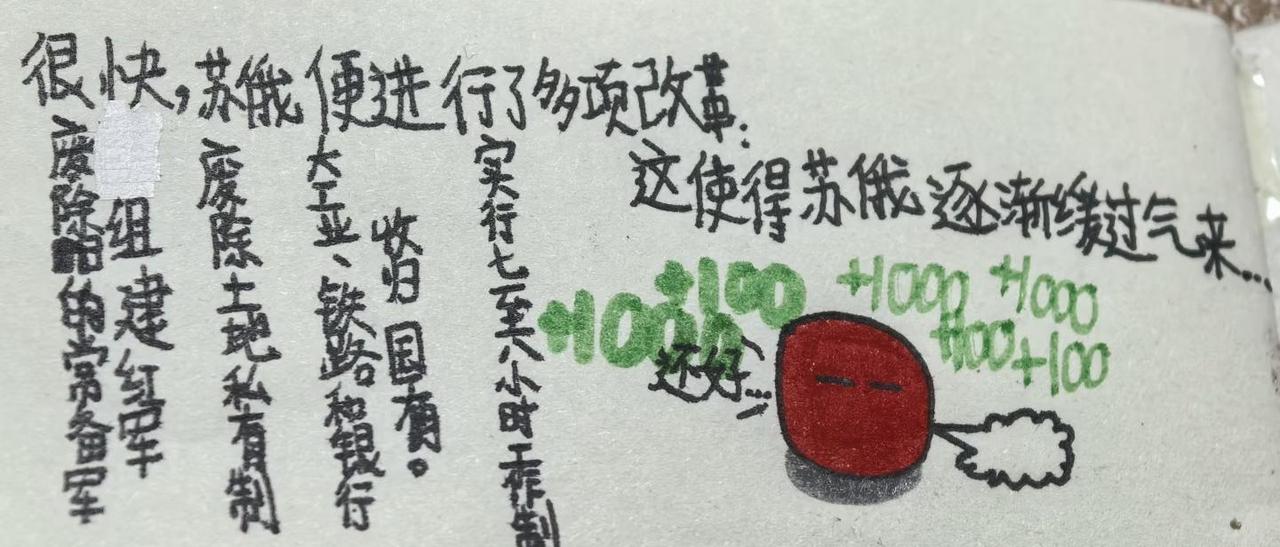 很快,苏俄便进行了多项改革:
废除旧的常备军
组建红军
废除土地私有制
大工业、铁路和银行
收归国有。
实行七至八小时工作制
这使得苏俄逐渐缓过气来...
+1000
+100
+1000
+1000
+100
+100
还好...